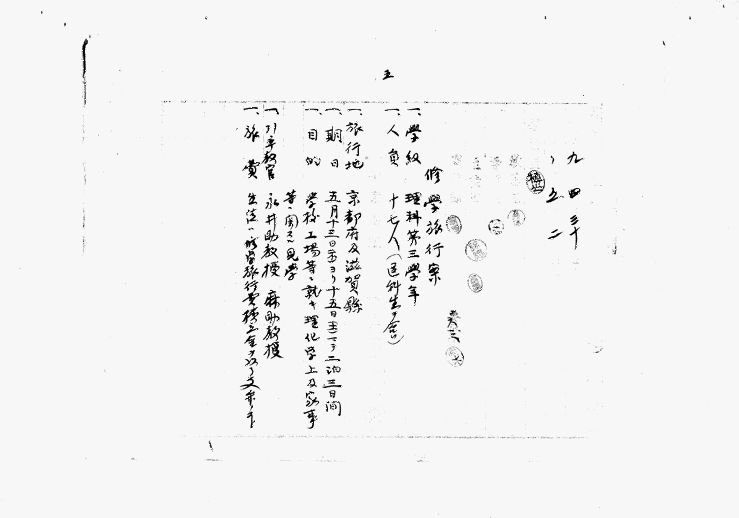 五
九、四、三十
、五、二
修學旅行案
一、學級 理科第三學年
一、人員 十七人(選科生ヲ含ム)
一、旅行地 京都府及滋賀縣
一、期日 五月十三日(金)ヨリ十五日(土)マデ二泊三日間
一、目的 學校工場等ニ就キ理化学上及家事
等ニ関スル見学
一、引率教官 永井助教授 麻助教授
一、旅費 生徒ハ修学旅行費積立金ヲ以テ支弁